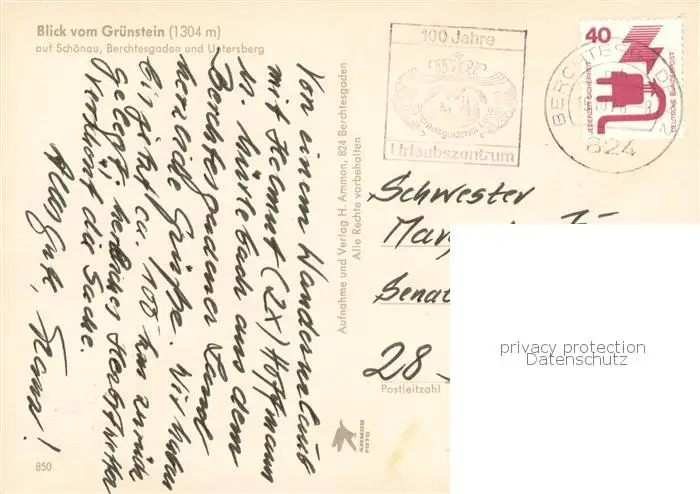 Blick vom Grünstein (1304 m)
auf Schönau, Berchtesgaden und Untersberg
Von einem Wanderurlaub
mit Helmut (2x) Hoffmann
u. Mürlebach aus dem
Berchtesgadener Land
herzliche Grüße. Wir haben
bis jetzt ca. 100 km zurück
gelegt; herrliches Herbstwetter
verschönt die Sache.
Alles Gute,
Aufnahme und Verlag H. Ammon, 824 Berchtesgaden
Alle Rechte vorbehalten
100 Jahre
Urlaubszentrum
BERCHTESGADEN
824
40
JEDERZEIT SICHERHEIT
DEUTSCHE BUNDESPOST
Schwester
Senat
28
Postleitzahl
privacy protection
Datenschutz
AMMON
FOTO
850